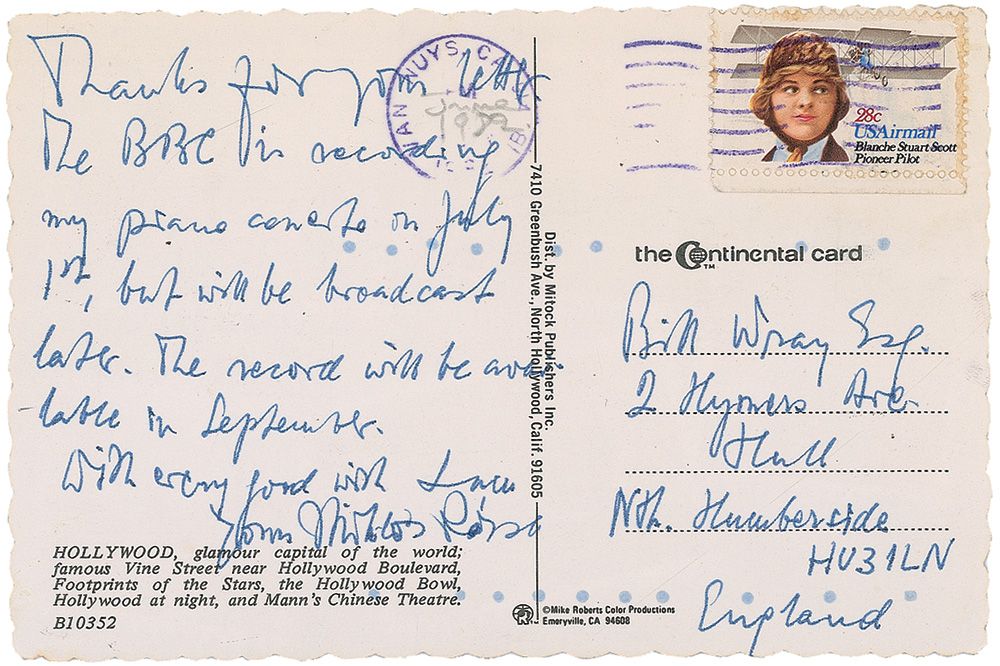 Thanks for your letter
The BBC is recording
my piano concerto on July
1st, but will be broadcast
later. The record will be avai
-lable in September.
With every good wish I am
Yours Miklós Rózsa
HOLLYWOOD, glamour capital of the world;
famous Vine Street near Hollywood Boulevard,
Footprints of the Stars, the Hollywood Bowl,
Hollywood at night, and Mann's Chinese Theatre.
B10352
VAN NUYS, CALIF.
Dist. by Mitock Publishers Inc.
7410 Greenbush Ave., North Hollywood, Calif. 91605
©Mike Roberts Color Productions
Emeryville, CA 94608
28c
USAirmail
Blanche Stuart Scott
Pioneer Pilot
the Continental card
TM
Bill Wray Esq.
2 Hymers Ave.
Hull
Nth. Humberside
HU31LN
England